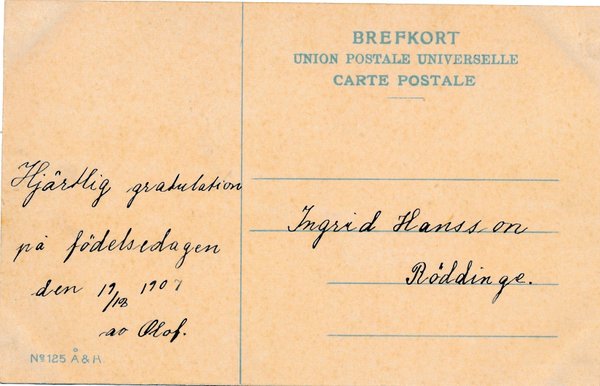 BREFKORT
UNION POSTALE UNIVERSELLE
CARTE POSTALE
Hjärtlig gratulation
på födelsedagen
den 19/12 1907
av Olof.
Ingrid Hansson
Röddinge.
No 125 Å & H.